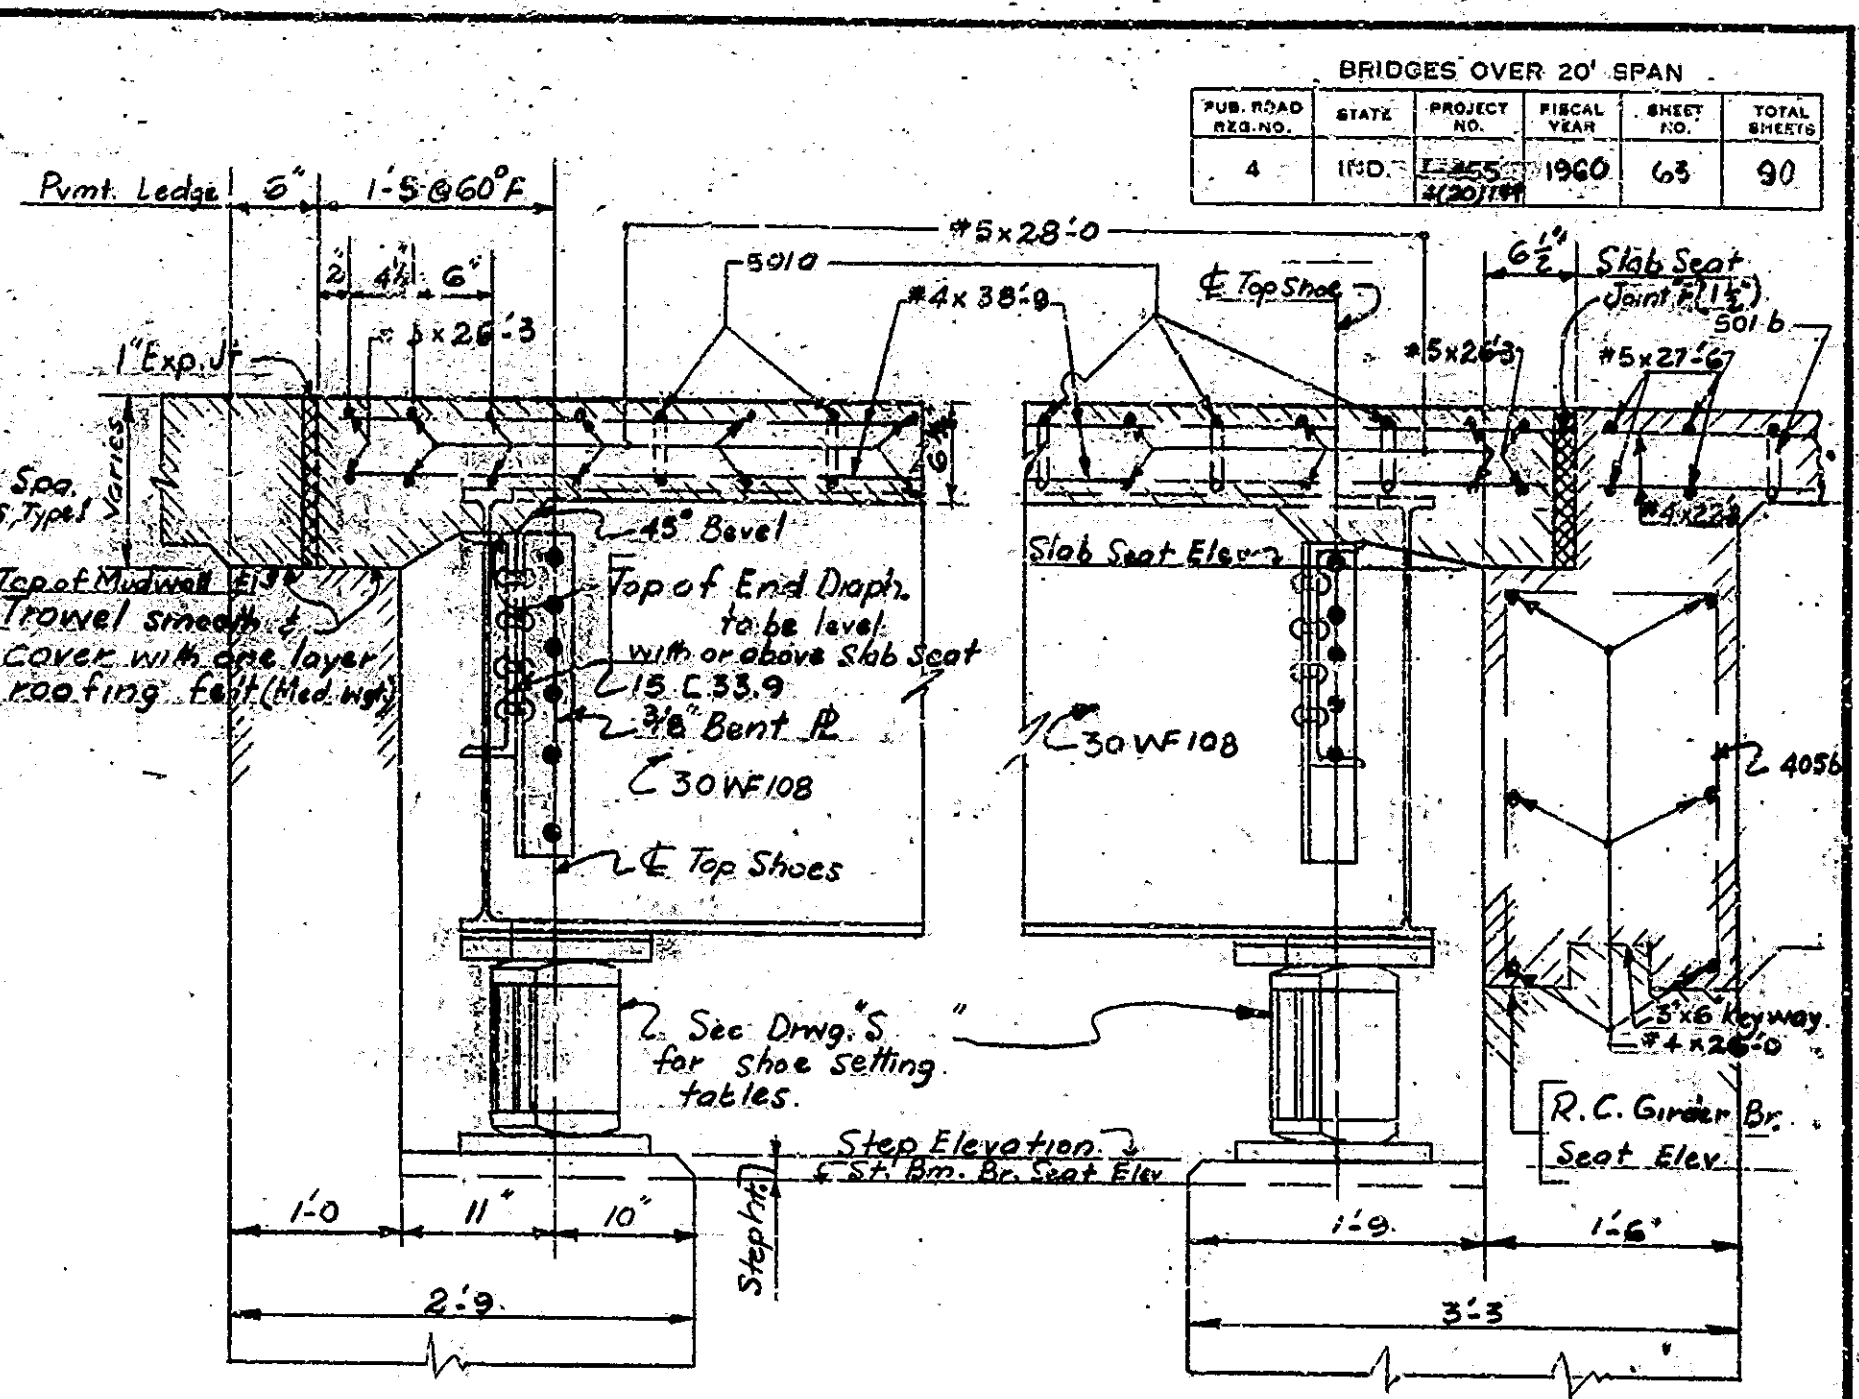 BRIDGES OVER 20' SPAN
PUB. ROAD REG. NO.
STATE
PROJECT NO.
FISCAL YEAR
SHEET NO.
TOTAL SHEETS
4
IND.
1960
63
90
Pvmt. Ledge
1'-5 @ 60°F
#5x28'-0
6 1/2"
2"
4 1/2"
6"
501a
#4x38'-9
℄ Top Shoe
Slab Seat
Joint "F" (1 1/2")
501b
x26'-3
1" Exp. Jt
#5x26'3
#5x27'-6
Varies
Spa.
Type 1
45° Bevel
Slab Seat Elev
Top of Mudwall El
Trowel smooth &
cover with one layer
roofing felt (Med. wgt.)
Top of End Diaph.
to be level
with or above Slab Seat
15 C 33.9
3/8" Bent PL
30 WF 108
30 WF 108
405b
℄ Top Shoes
See Drwg. "S "
for shoe setting
tables.
3"x6" Keyway
#4x26'-0
R.C. Girder Br.
Seat Elev.
Step Elevation
St. Bm. Br. Seat Elev
Step ht.
1'-0
11"
10"
1'-9
1'-6"
2'-9
3'-3